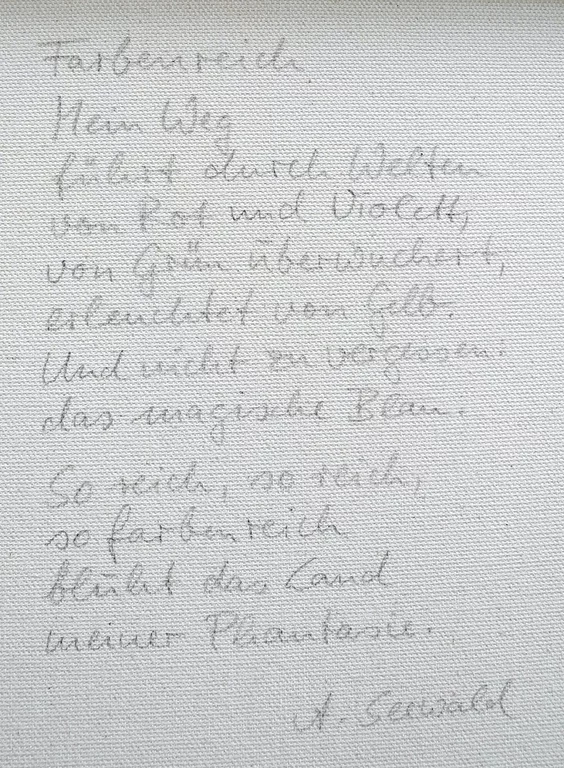 Farbenreich
Mein Weg
führt durch Welten
von Rot und Violett,
von Grün überwuchert,
erleuchtet von Gelb.
Und nicht zu vergessen:
das magische Blau.
So reich, so reich,
so farbenreich
blüht das Land
meiner Phantasie.
A. Seewald